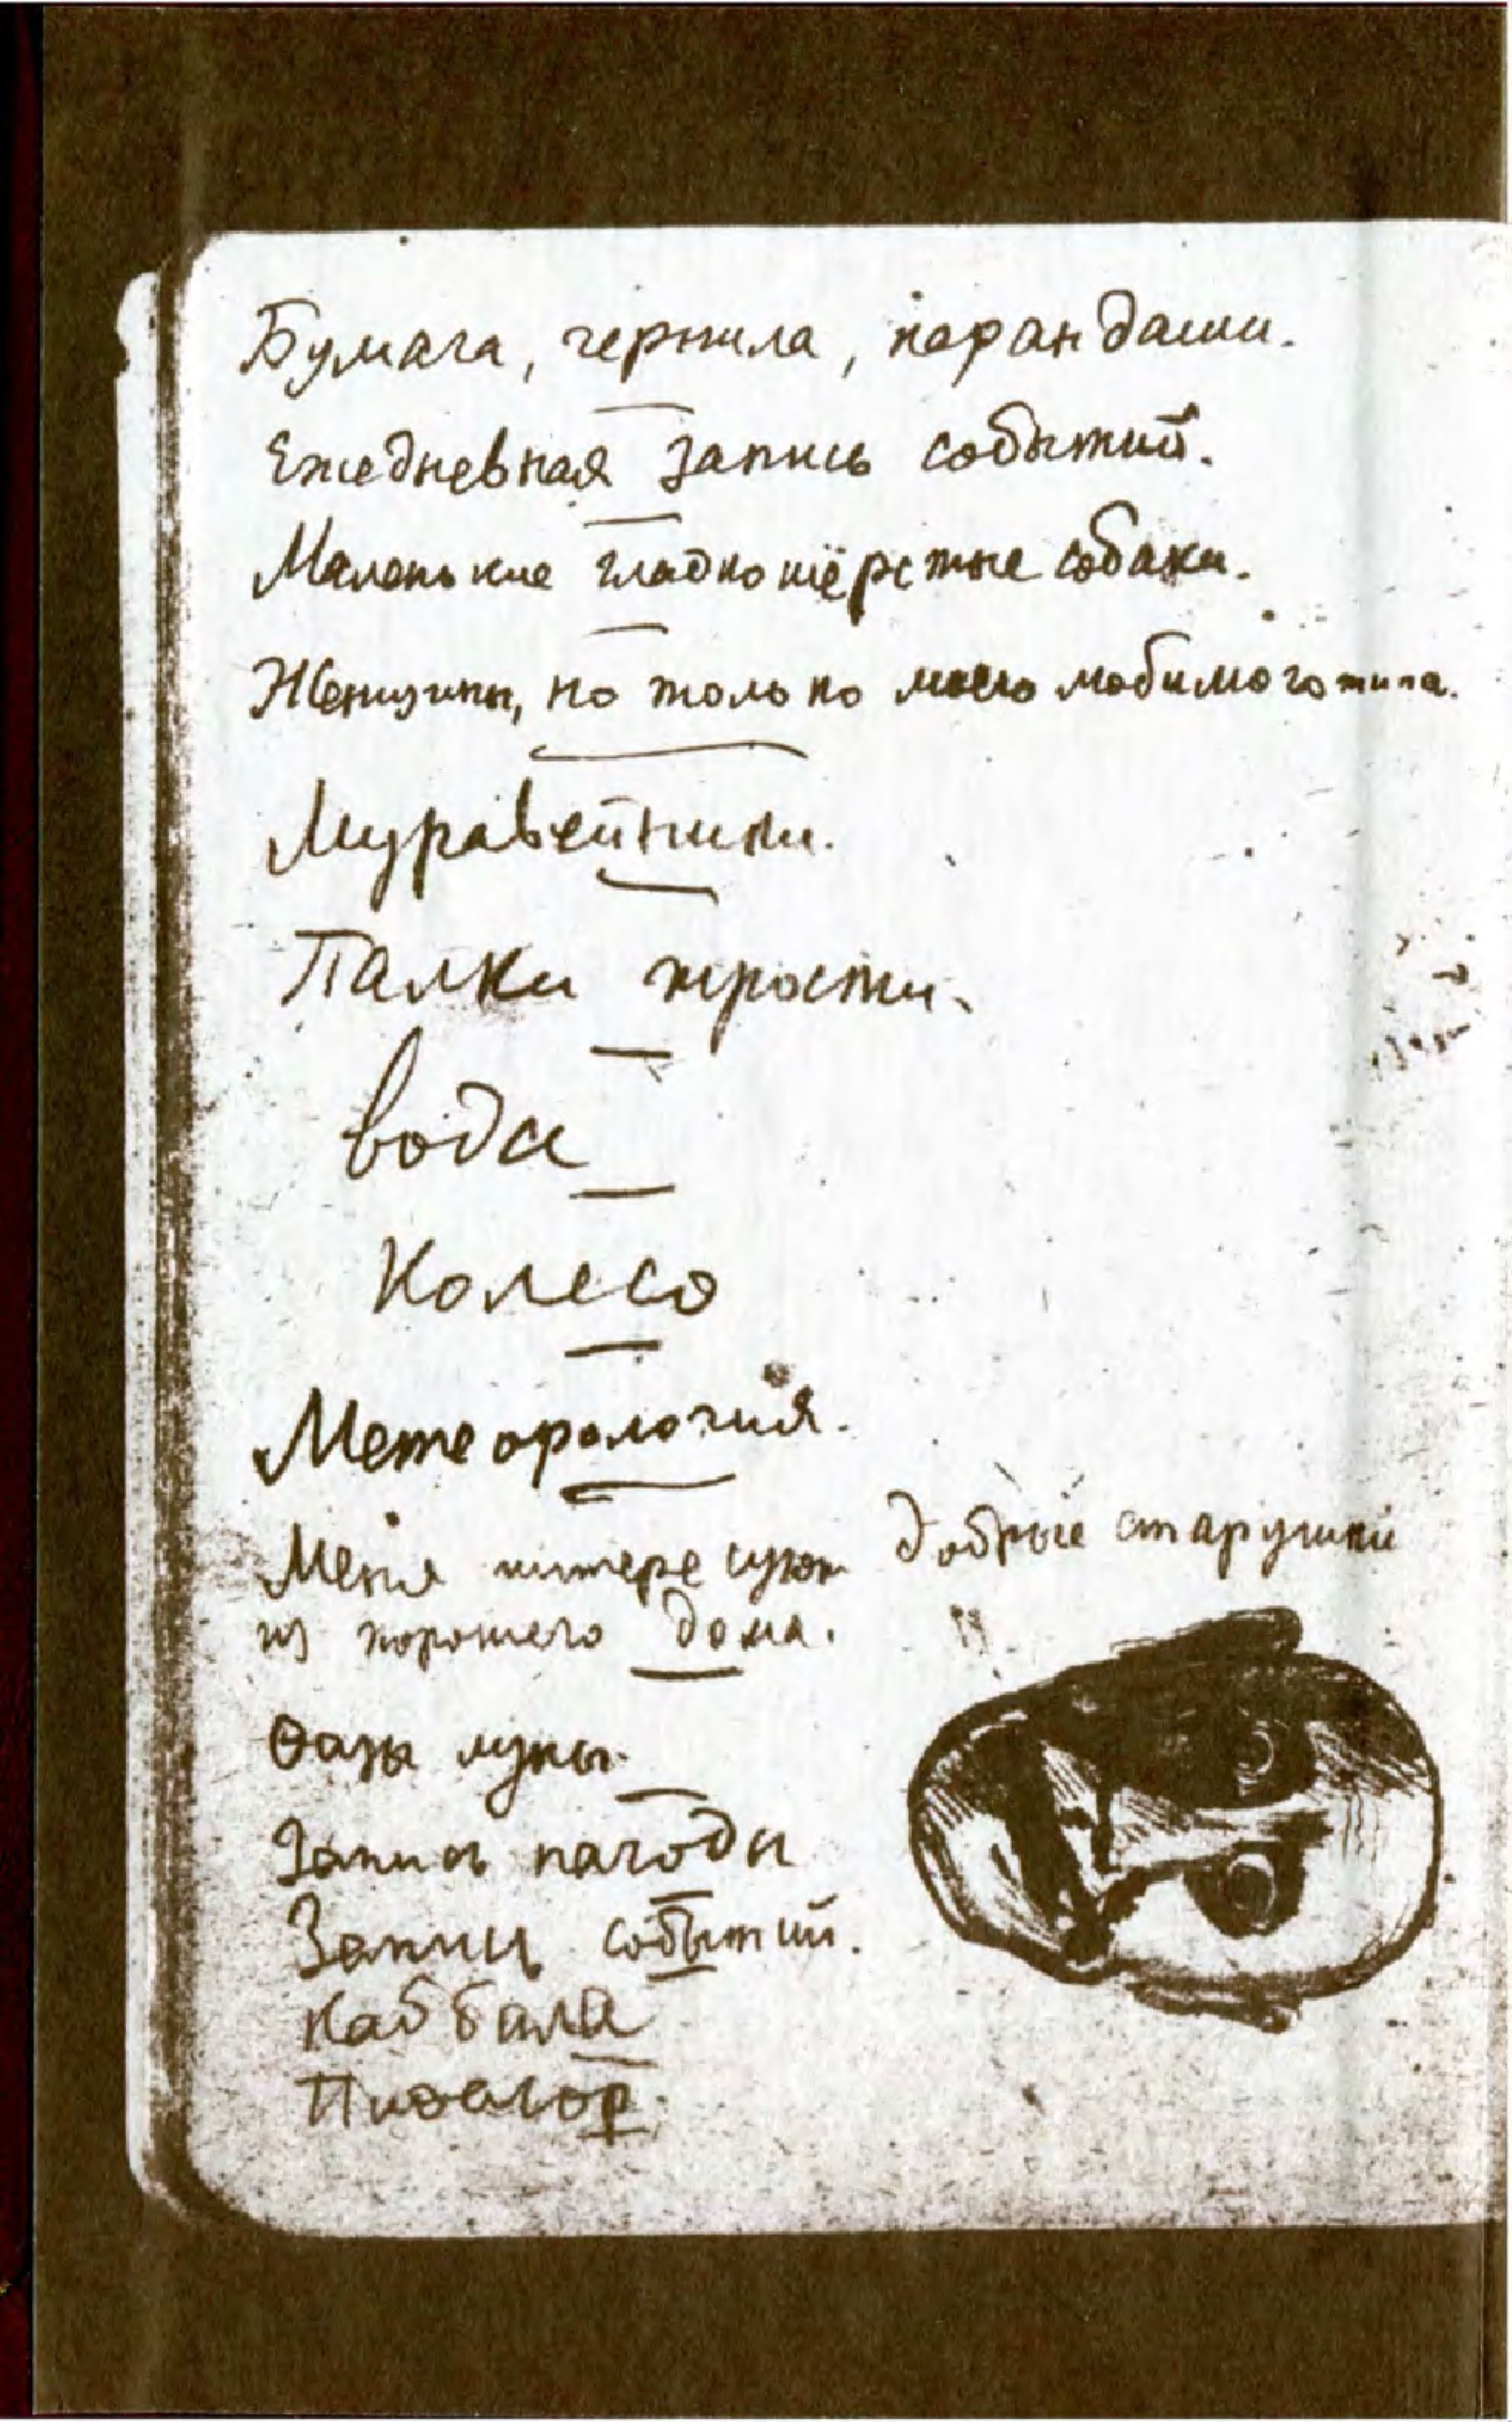 Бумага, чернила, карандаши.
Ежедневная запись событий.
Маленькие гладкошёрстные собаки.
Женщины, но только моего любимого типа.
Муравейники.
Палки трости.
Вода
Колесо
Метеорология.
Меня интересуют добрые старушки
из хорошего дома.
Фазы луны.
Запись пагоды
Запись событий.
Каббала
Пиѳагор.